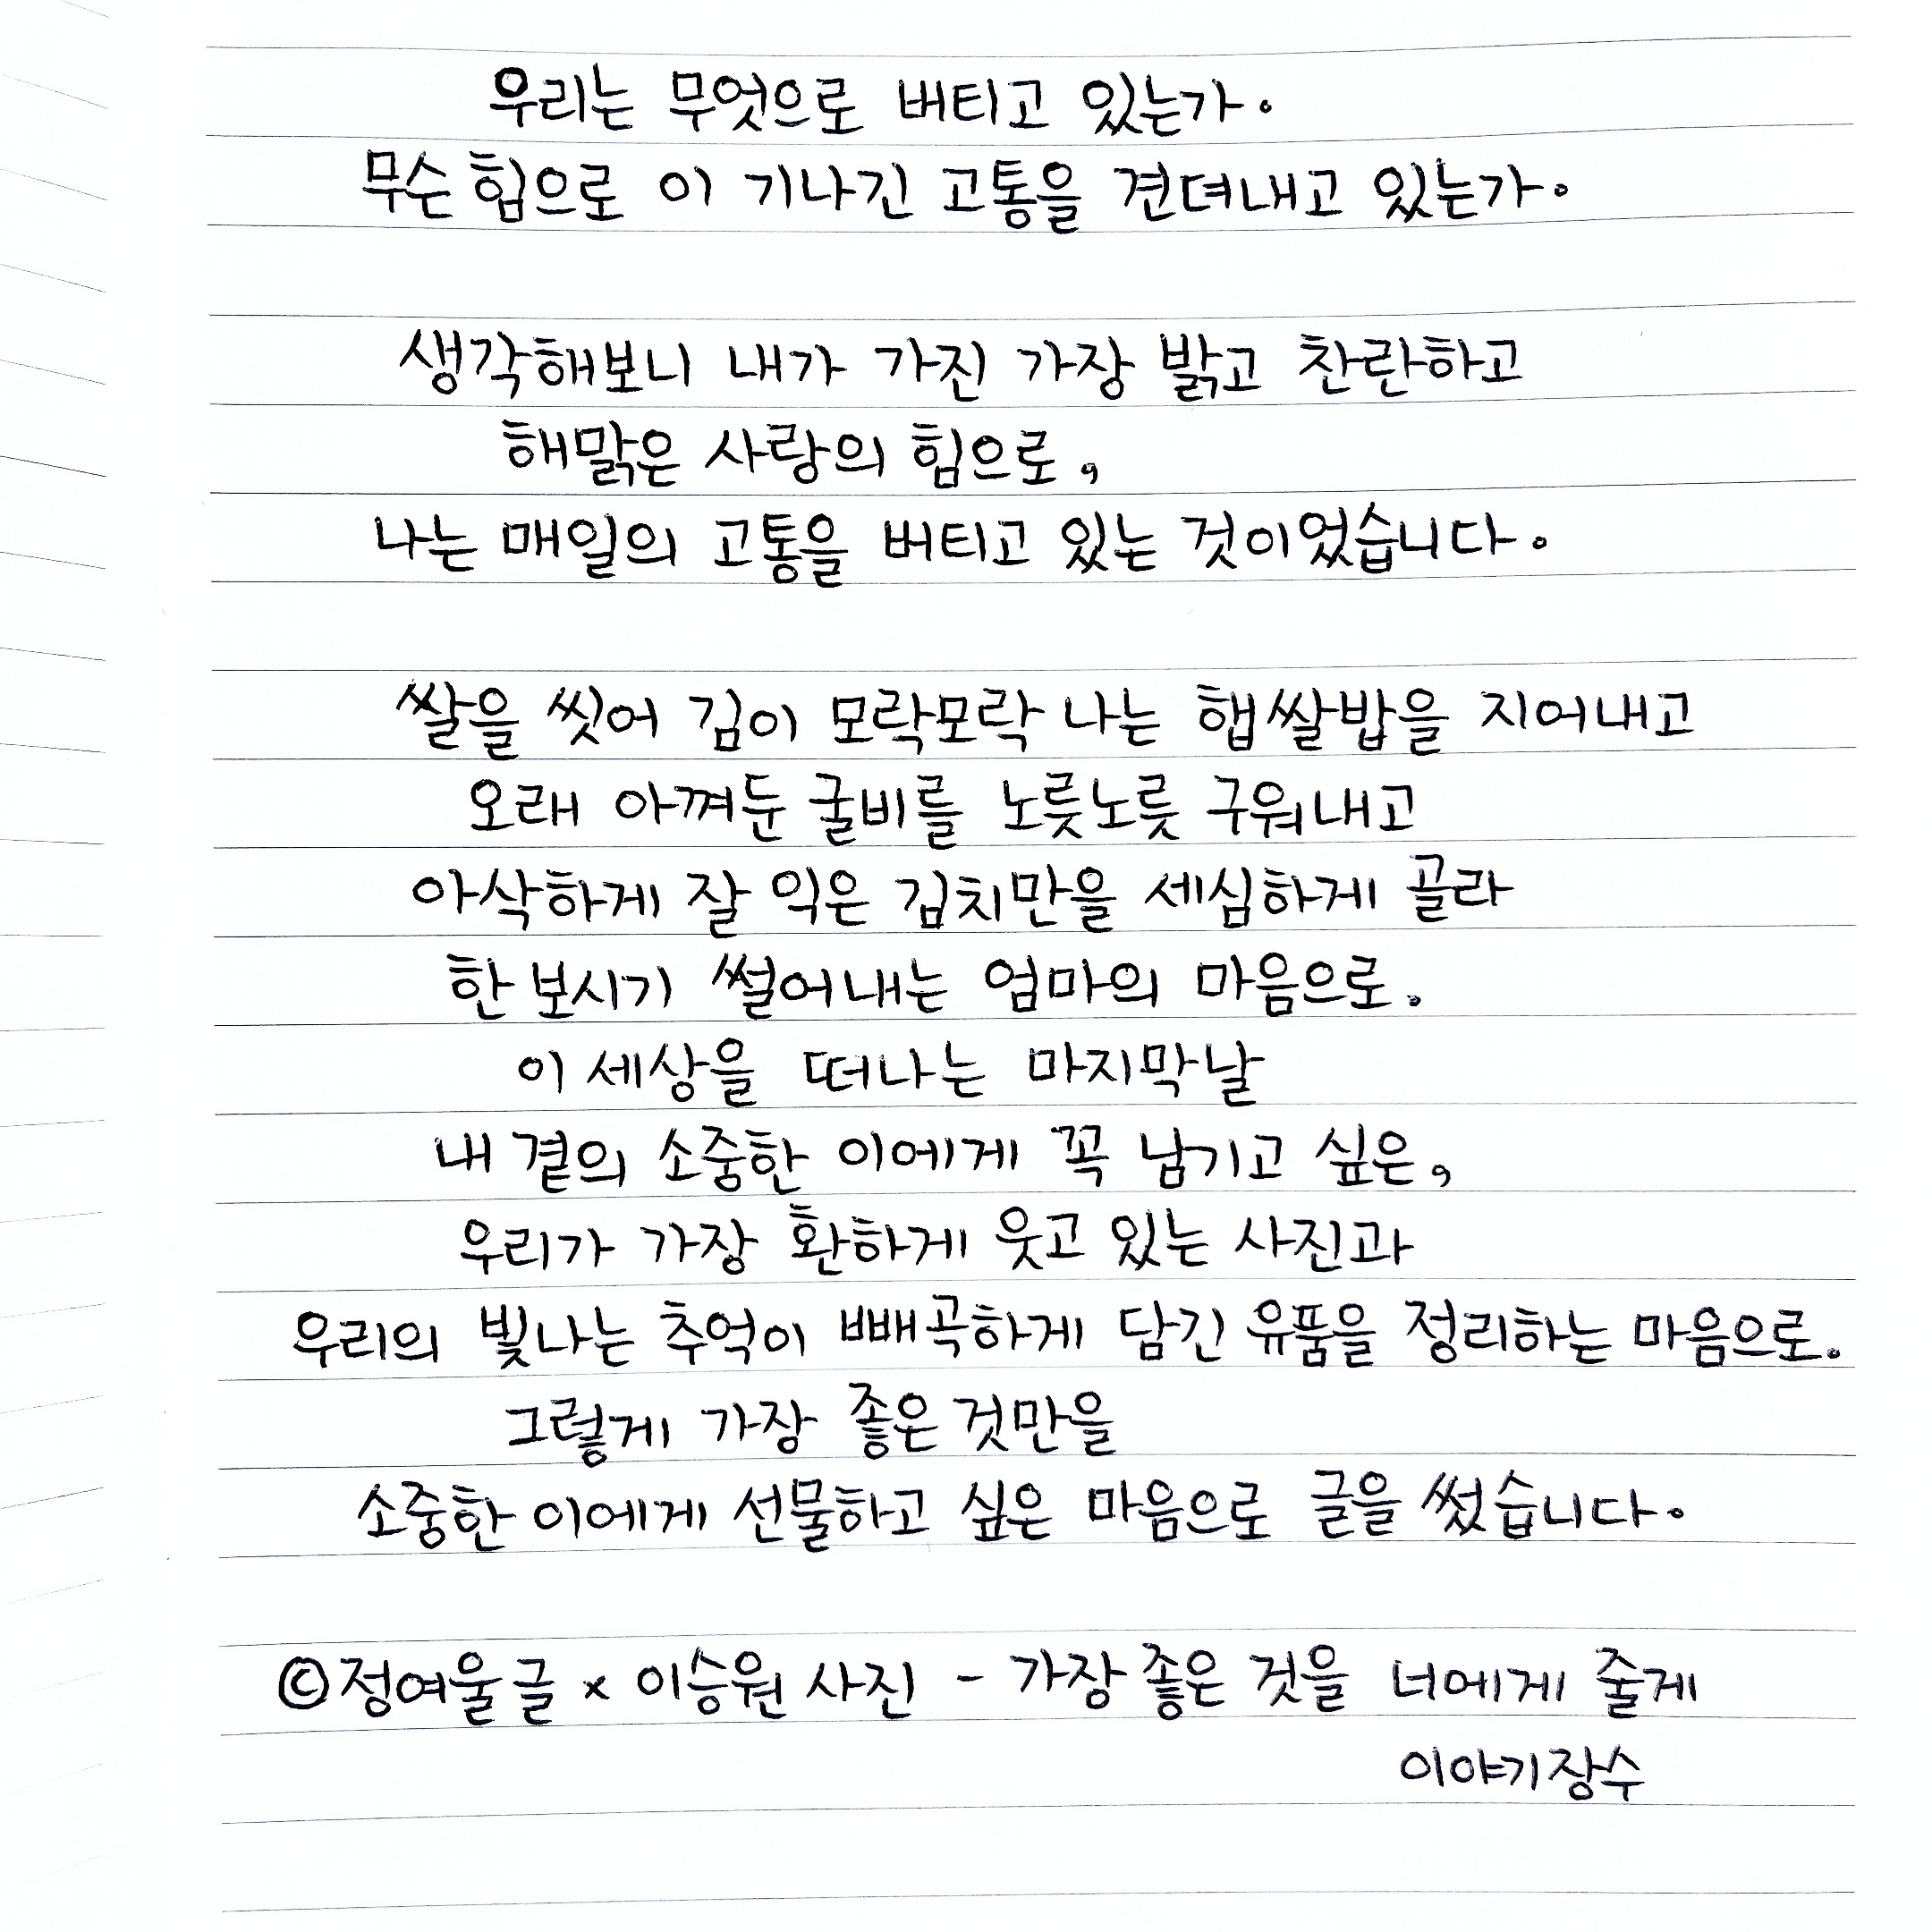 우리는 무엇으로 버티고 있는가.
무슨 힘으로 이 기나긴 고통을 견뎌내고 있는가.
생각해보니 내가 가진 가장 밝고 찬란하고
해맑은 사랑의 힘으로,
나는 매일의 고통을 버티고 있는 것이었습니다.
쌀을 씻어 김이 모락모락 나는 햅쌀밥을 지어내고
오래 아껴둔 굴비를 노릇노릇 구워내고
아삭하게 잘 익은 김치만을 세심하게 골라
한 보시기 썰어내는 엄마의 마음으로.
이 세상을 떠나는 마지막날
내 곁의 소중한 이에게 꼭 남기고 싶은,
우리가 가장 환하게 웃고 있는 사진과
우리의 빛나는 추억이 빼곡하게 담긴 유품을 정리하는 마음으로.
그렇게 가장 좋은 것만을
소중한 이에게 선물하고 싶은 마음으로 글을 썼습니다.
©정여울 글 x 이승원 사진 - 가장 좋은 것을 너에게 줄게
이야기장수